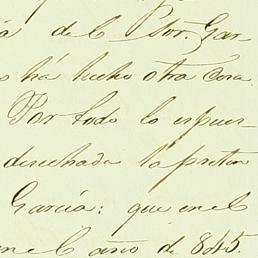 a de l Stor. Gar-
s há hecho otra cosa
Por todo lo espues-
desechada la preten
García: que en el
en el año de 845.